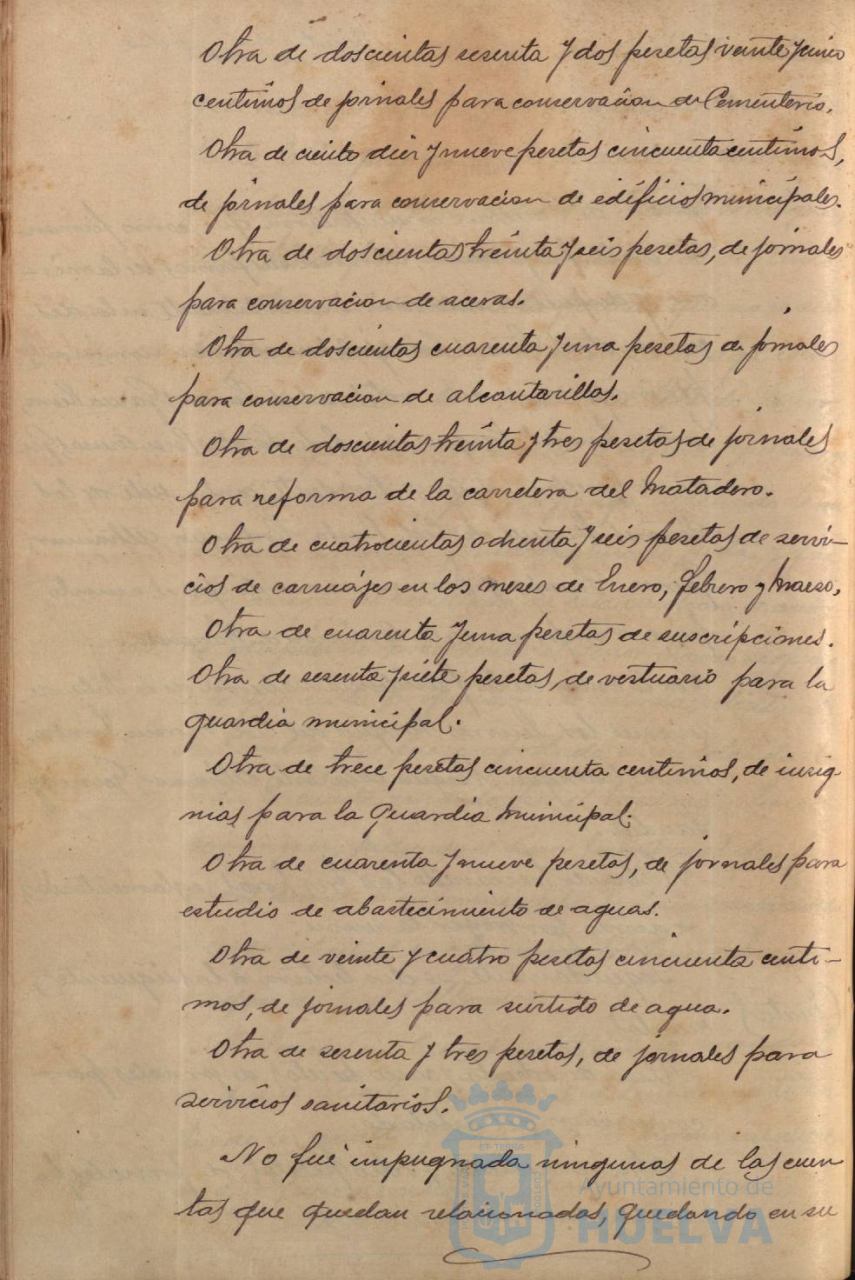 Otra de doscientas sesenta y dos pesetas veinte y cinco
centimos de jornales para conservacion de Cementerio.
Otra de ciento diez y nueve pesetas cincuenta centimos,
de jornales para conservacion de edificios municipales.
Otra de doscientas treinta y seis pesetas, de jornales
para conservacion de aceras.
Otra de doscientas cuarenta y una pesetas de jornales
para conservacion de alcantarillas.
Otra de doscientas treinta y tres pesetas de jornales
para reforma de la carretera del Matadero.
Otra de cuatrocientas ochenta y seis pesetas de servi-
cios de carruajes en los meses de Enero, Febrero y Marzo.
Otra de cuarenta y una pesetas de suscripciones.
Otra de sesenta y siete pesetas, de vestuario para la
guardia municipal.
Otra de trece pesetas cincuenta centimos, de insig
nias para la Guardia Municipal.
Otra de cuarenta y nueve pesetas, de jornales para
estudio de abastecimiento de aguas.
Otra de veinte y cuatro pesetas cincuenta centi-
mos, de jornales para surtido de agua.
Otra de sesenta y tres pesetas, de jornales para
servicios sanitarios.
No fué impugnada ningunas de las cuen
tas que quedan relacionadas, quedando en su
Ayuntamiento de
HUELVA